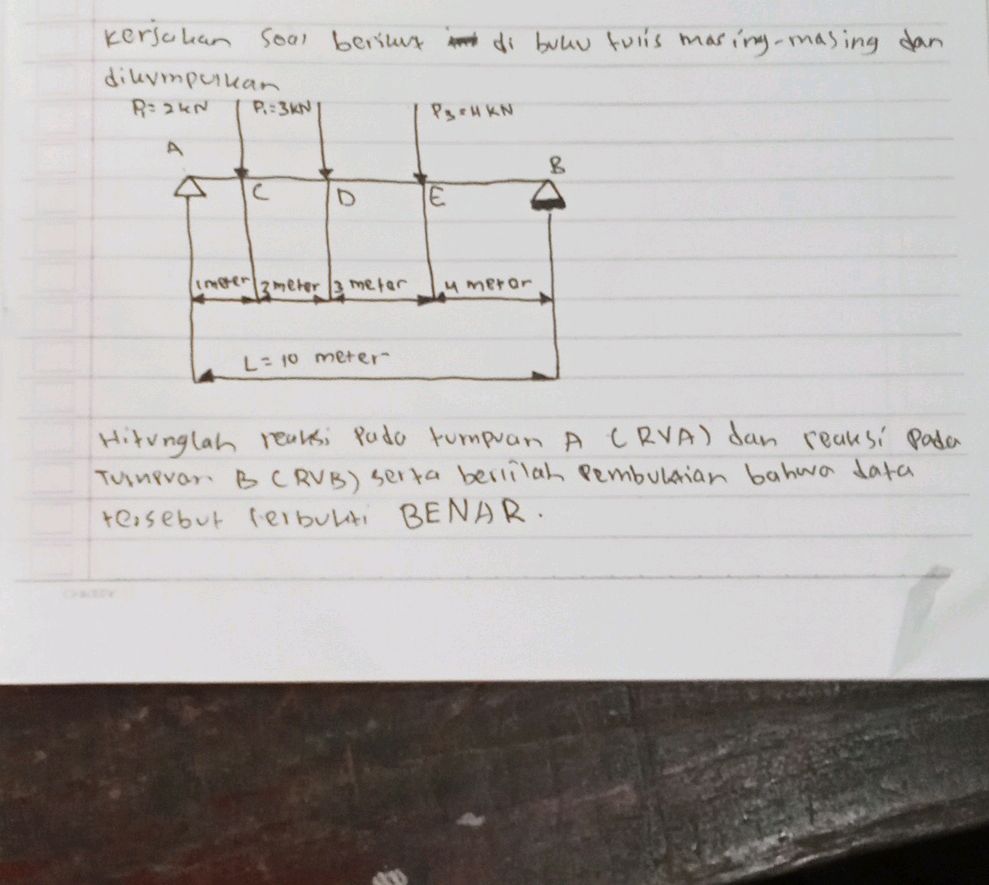 Kerjakan soal berikut di buku tulis masing-masing dan
dikumpulkan
P1=2kN P1=3KN P3=4KN
A
B
C D E
1 meter 2 meter 3 meter 4 meter
L=10 meter
Hitunglah reaksi Pada tumpuan A (RVA) dan reaksi Pada
Tumpuan B (RVB) serta berilah Pembuktian bahwa data
tersebut terbukti BENAR.